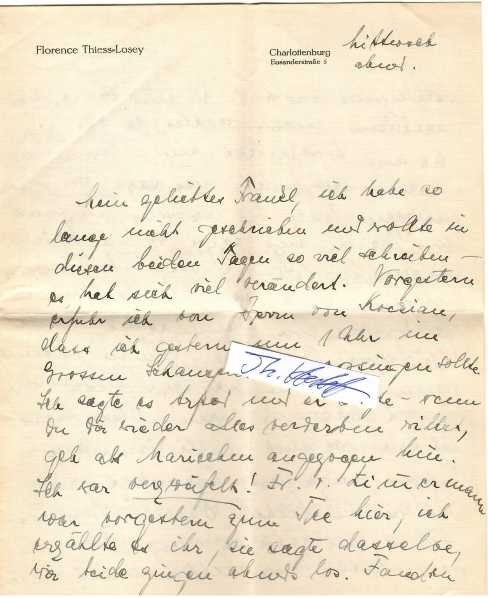 Florence Thiess-Losey
Charlottenburg
Eosanderstraße 5
Mittwoch
abend.
Mein geliebtes Frandl, ich habe so
lange nicht geschrieben und wollte in
diesen beiden Tagen so viel schreiben –
es hat sich viel verändert. Vorgestern
erfuhr ich von Herrn von
dass ich gestern um 1 Uhr im
Grossen vorsingen sollte
Ich sagte es und – wenn
Du Dir wieder alles verderben willst,
geh als Harischen angezogen hin.
Ich war verzweifelt! Fr. v. Zimmermann
war vorgestern zum Tee hier, ich
erzählte es ihr, sie sagte dasselbe,
wir beide gingen abends los. Fanden